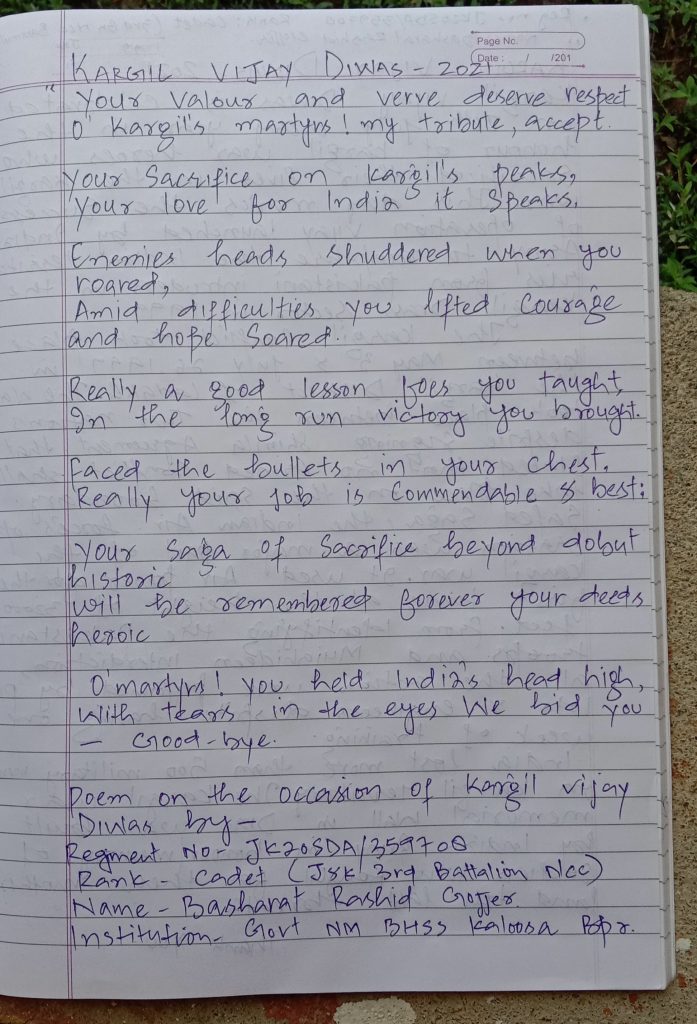 Page No.
Date: / /201
KARGIL VIJAY DIWAS - 2021
"Your Valour and verve deserve respect
O' Kargil's martyrs! my tribute, accept.
Your Sacrifice on Kargil's peaks,
Your love for India it Speaks.
Enemies heads shuddered when you
roared,
Amid difficulties you lifted Courage
and hope Soared.
Really a good lesson foes you taught,
In the long run victory you brought.
Faced the bullets in your chest.
Really your job is Commendable & best:
Your Saga of Sacrifice beyond dobut
historic
will be remembered forever your deeds
heroic
O'martyrs! you held India's head high,
With tears in the eyes We bid you
- Good-bye.
Poem on the occasion of Kargil vijay
Diwas by-
Regiment No- JK20SDA/359700
Rank - Cadet (J&K 3rd Battalion Ncc)
Name - Basharat Rashid
Institution- Govt NM BHSS Kaloosa Bpr.